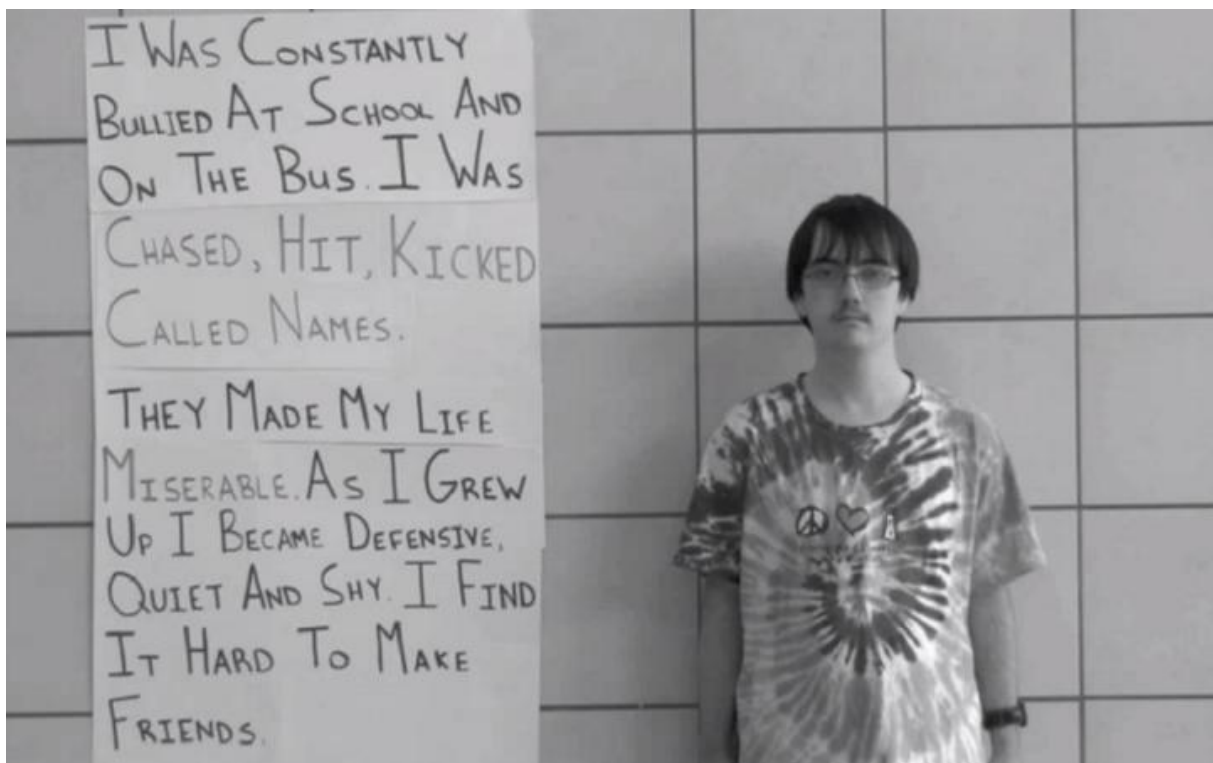 I WAS CONSTANTLY
BULLIED AT SCHOOL AND
ON THE BUS. I WAS
CHASED, HIT, KICKED
CALLED NAMES.
THEY MADE MY LIFE
MISERABLE. AS I GREW
UP I BECAME DEFENSIVE,
QUIET AND SHY. I FIND
IT HARD TO MAKE
FRIENDS.